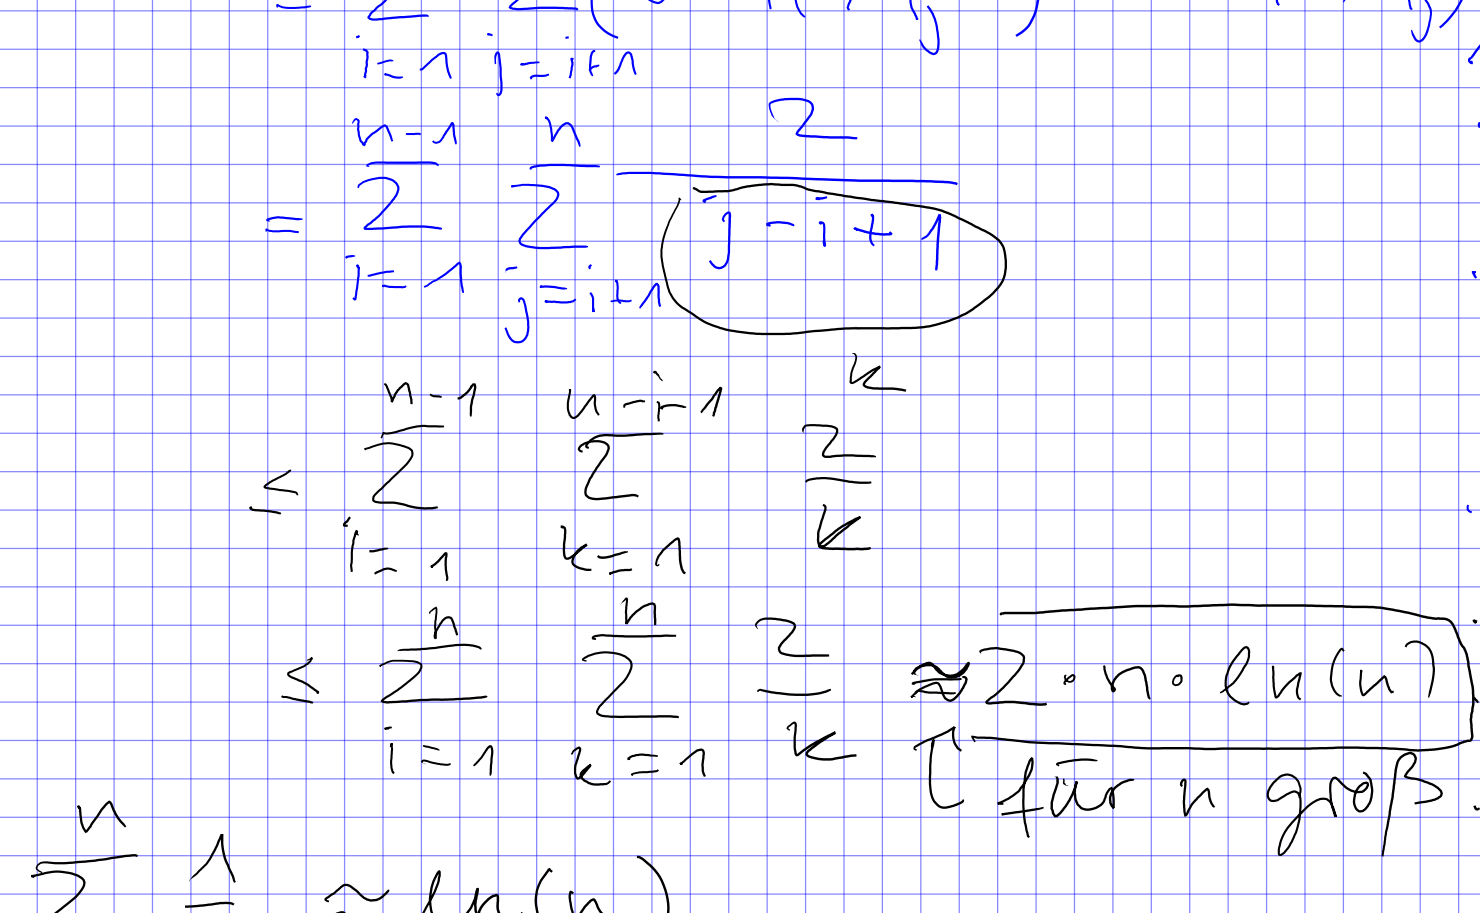 i=1 j=i+1
= \sum_{i=1}^{n-1} \sum_{j=i+1}^{n} \frac{2}{j-i+1}
k
≤ \sum_{i=1}^{n-1} \sum_{k=1}^{n-i-1} \frac{2}{k}
≤ \sum_{i=1}^{n} \sum_{k=1}^{n} \frac{2}{k} ≈ 2·n·ln(n)
für n groß
n
\sum 1 ≈ ln(n)